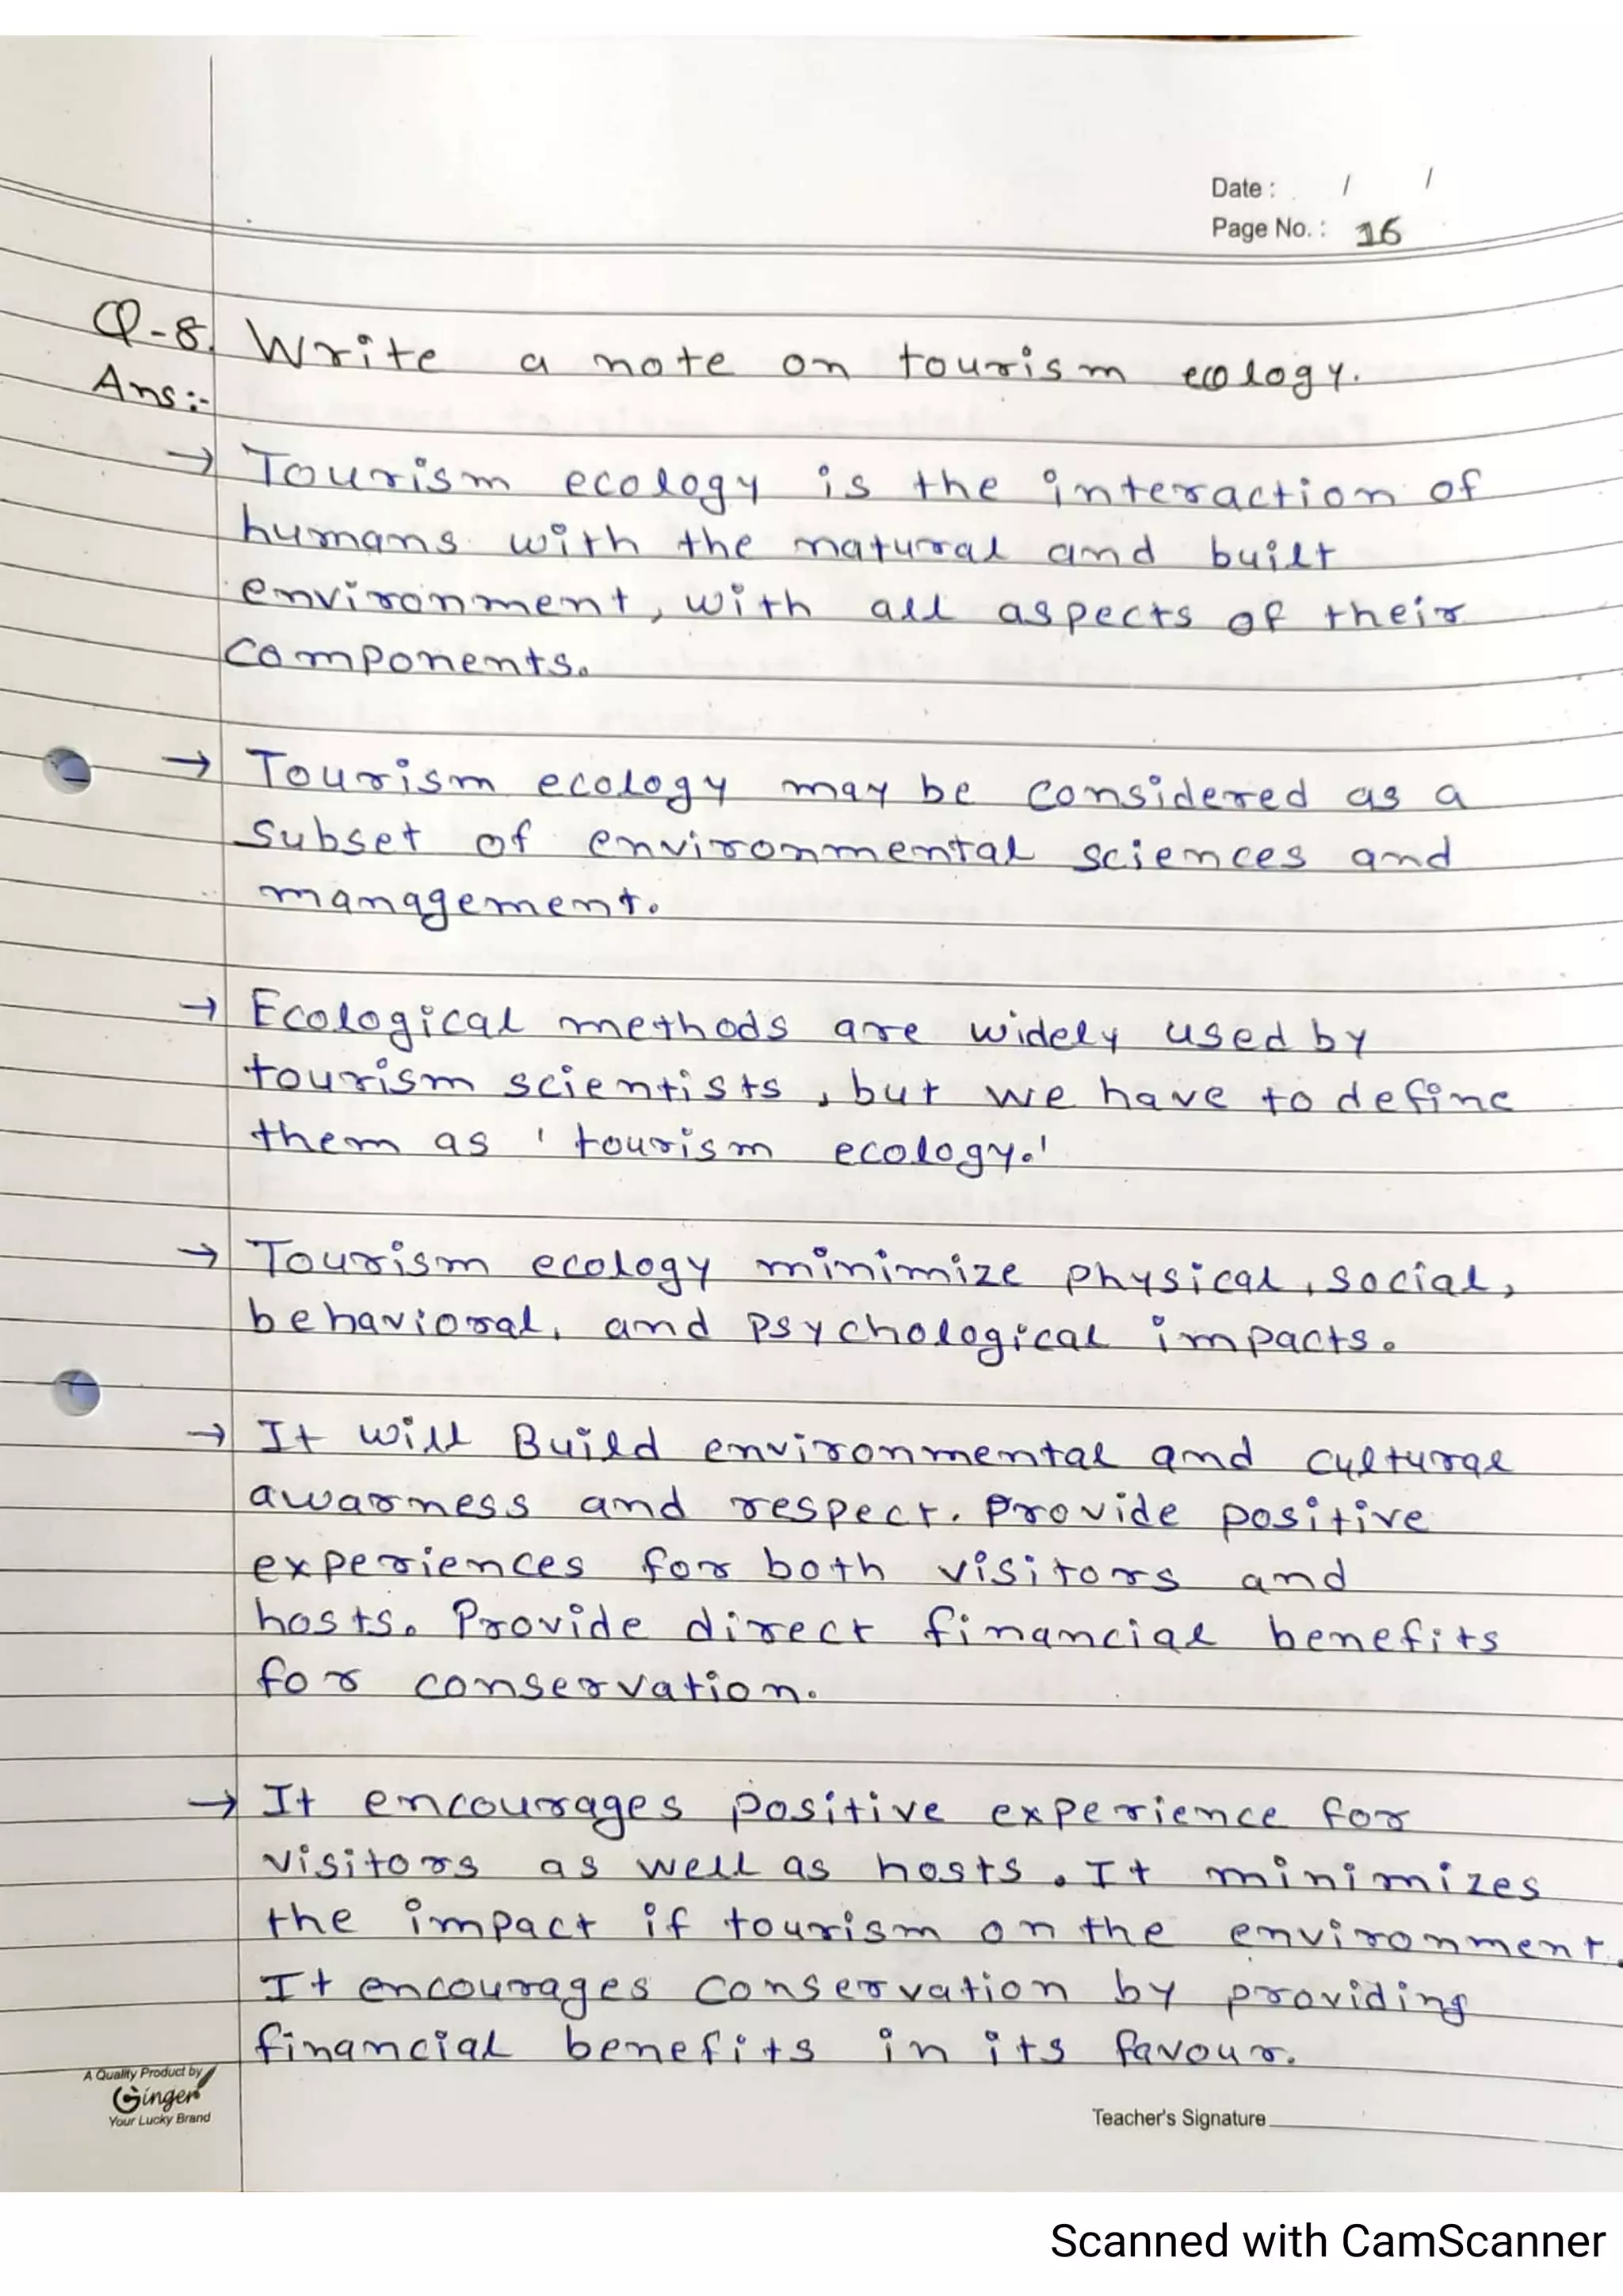 Date : / /
Page No. : 16
Q-8. Write a note on tourism ecology.
Ans :-
→ Tourism ecology is the interaction of
humans with the natural and built
environment, with all aspects of their
components.
→ Tourism ecology may be considered as a
subset of environmental sciences and
management.
→ Ecological methods are widely used by
tourism scientists, but we have to define
them as 'tourism ecology.'
→ Tourism ecology minimize physical, social,
behavioral, and psychological impacts.
→ It will Build environmental and cultural
awarness and respect. Provide positive
experiences for both visitors and
hosts. Provide direct financial benefits
for conservation.
→ It encourages positive experience for
visitors as well as hosts. It minimizes
the impact if tourism on the environment.
It encourages conservation by providing
financial benefits in its favour.
A Quality Product by
Ginger
Your Lucky Brand
Teacher's Signature
Scanned with CamScanner